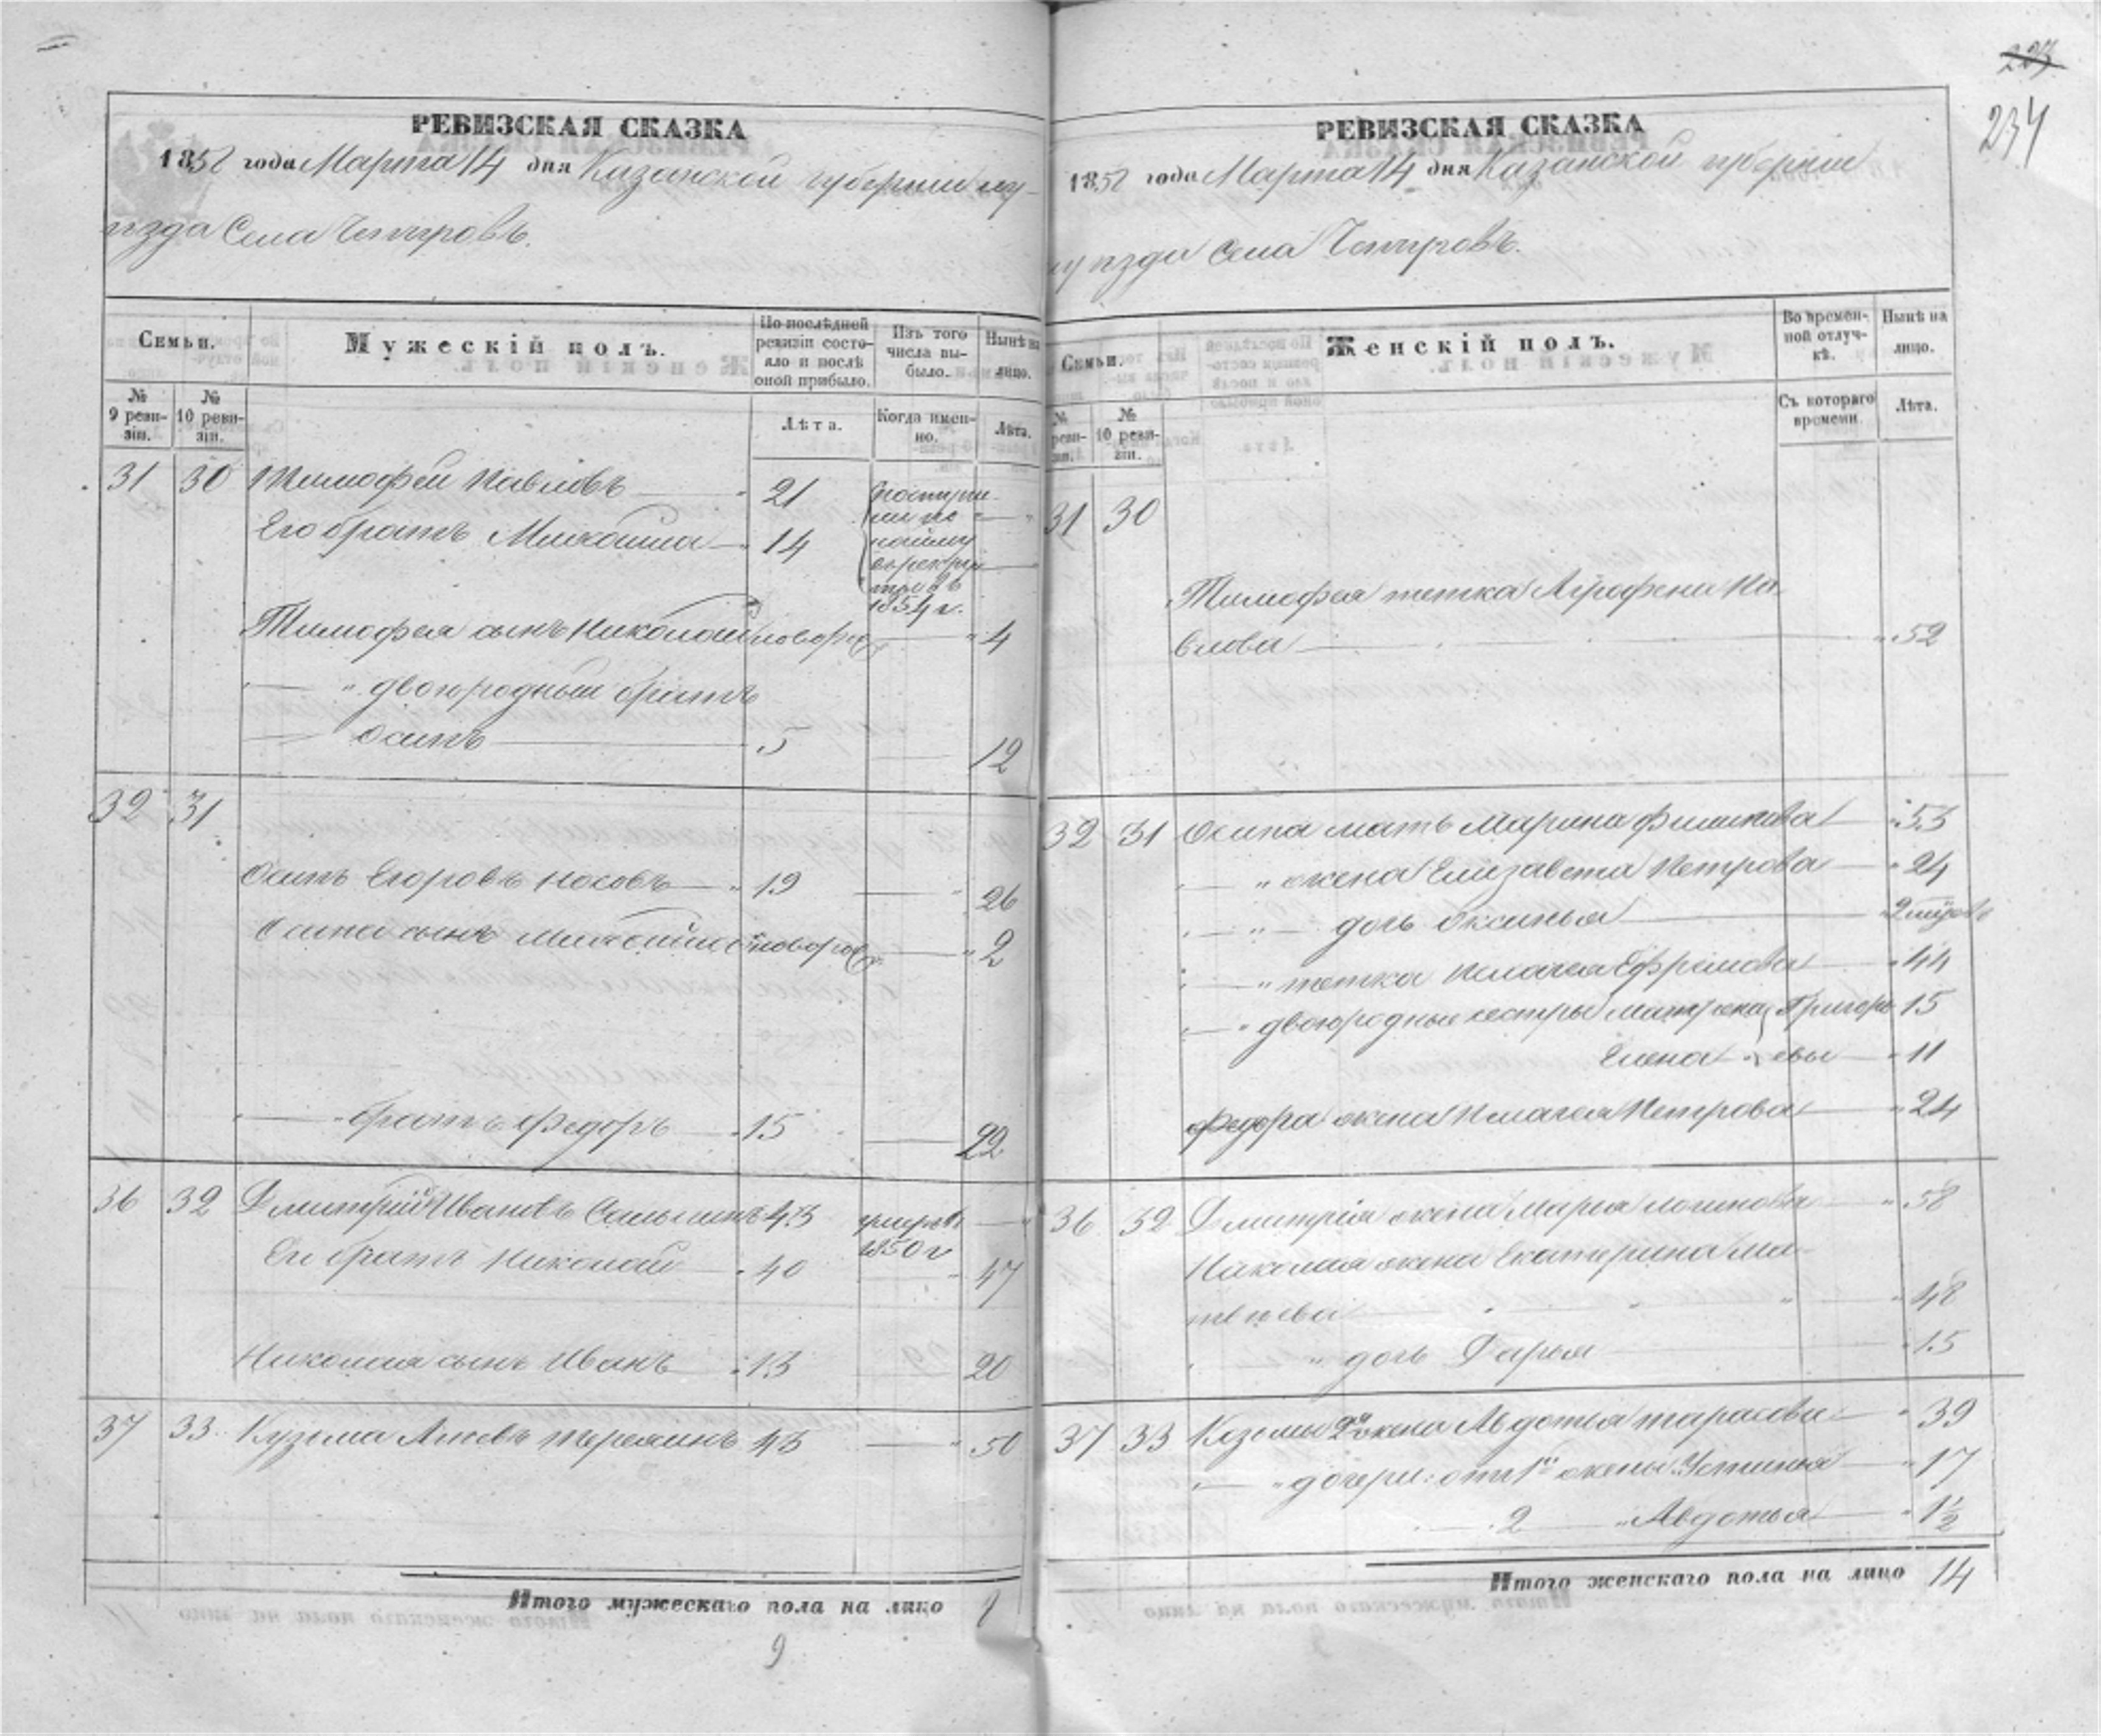 223
234
РЕВИЗСКАЯ СКАЗКА
1858 года Марта 14 дня Казанской губернии и у-
ѣзда Села
Семьи.
Мужескій полъ.
По последней ревизіи состояло и послѣ оной прибыло.
Изъ того числа выбыло.
Нынѣ на лицо.
№ 9 ревизіи.
№ 10 ревизіи.
Лѣта.
Когда именно.
Лѣта.
31 30 Тимофей Павловъ 21 поступи-
Его братъ 14
ли по
найму
въ рекру
ты въ
1854 г.
Тимофея сынъ Николай новорож 4
" двоюродный братъ
Осипъ 5 12
32 31
Осипъ Егоровъ Носовъ 19 26
Осипа сынъ новорож 2
братъ Федоръ 15 22
36 32 Дмитрій Ивановъ 43 умеръ
1850 г
Его братъ Николай 40 47
Николая сынъ Иванъ 13 20
37 33 Кузьма 43 50
Итого мужескаго пола на лицо
9
РЕВИЗСКАЯ СКАЗКА
1858 года Марта 14 дня Казанской губерніи
уѣзда Села
Семьи.
Женскій полъ.
Во временной отлучкѣ.
Нынѣ на лицо.
№ ревизіи.
№ 10 ревизіи.
Съ котораго времени.
Лѣта.
31 30
Тимофея тетка Аграфена Па-
влова 52
32 31 Осипа мать Марина Филипова 53
" жена Елизавета Петрова 24
" дочь Оксинья
" тетка Пелагея Ефремова 44
" двоюродные сестры Матрена Григорь 15
Елена евы 11
Федора жена Пелагея Петрова 24
36 32 Дмитрія жена Марья Логинова 58
Николая жена Екатерина Ма-
твѣева 48
" дочь Дарья 15
37 33 Козьмы 2я жена Авдотья Тарасова 39
" дочери: отъ 1й жены Устинья 17
2 " Авдотья 1½
Итого женскаго пола на лицо 14